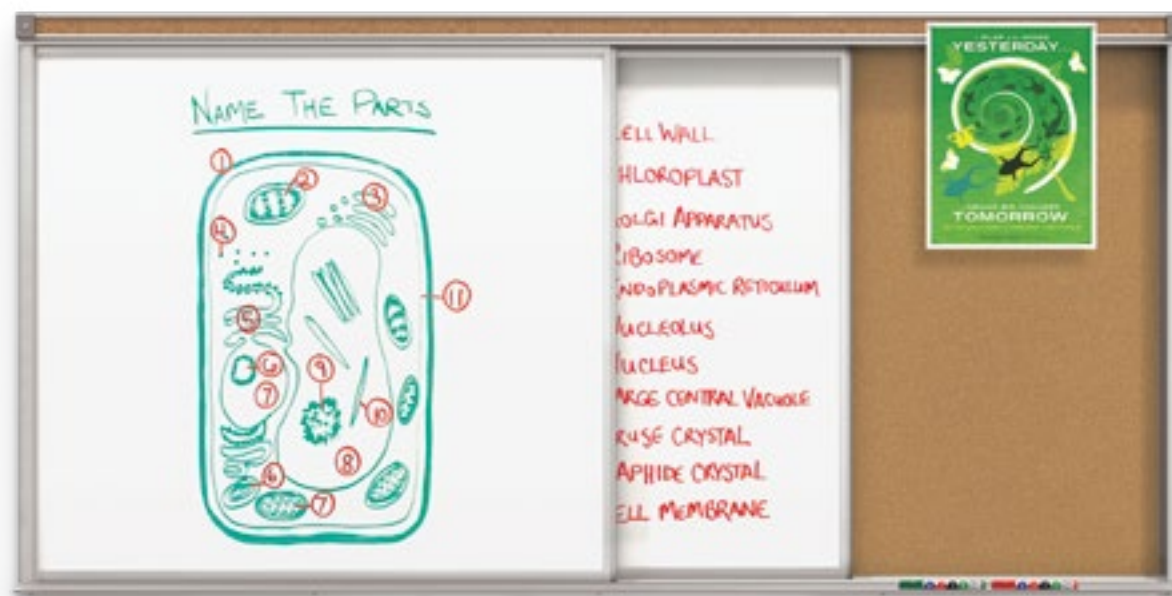 NAME THE PARTS
1
2
3
4
11
5
6
7
9
10
8
6
7
ELL WALL
HLOROPLAST
OLGI APPARATUS
IBOSOME
NDOPLASMIC RETICULUM
UCLEOLUS
UCLEUS
ARGE CENTRAL VACUOLE
RUSE CRYSTAL
APHIDE CRYSTAL
ELL MEMBRANE
YESTERDAY
TOMORROW